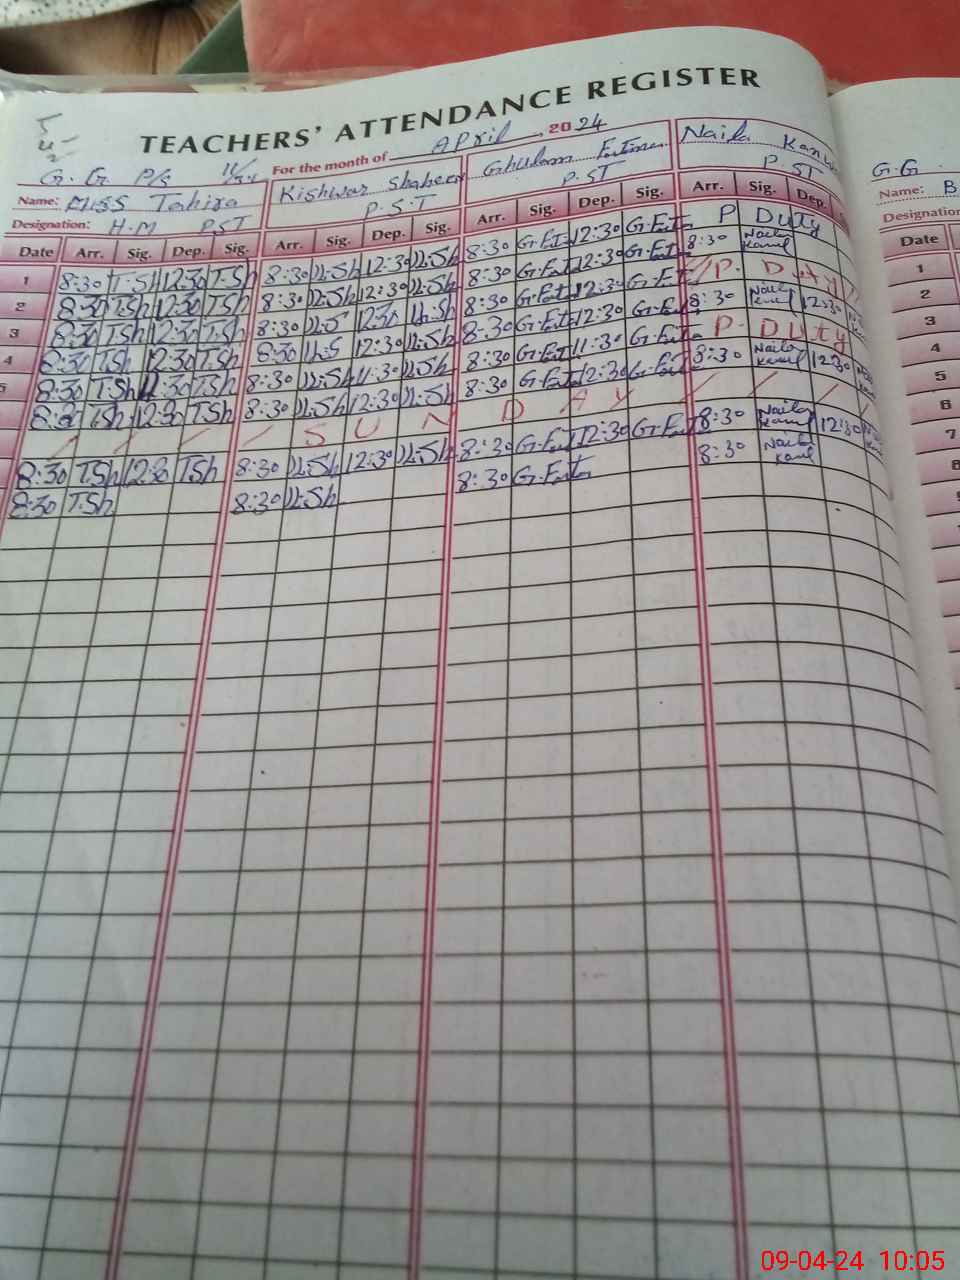 TEACHERS' ATTENDANCE REGISTER
G. G. P/S For the month of April, 2024
Name: Miss Tahira Kishwar Shaheen Ghulam Fatima Naila Kanwal
Designation: H.M PST P.S.T P.ST P.ST
Date Arr. Sig. Dep. Sig. Arr. Sig. Dep. Sig. Arr. Sig. Dep. Sig. Arr. Sig. Dep. S
1 8:30 T.Sh 12:30 T.Sh 8:30 K.Sh 12:30 K.Sh 8:30 G.Fat 12:30 G.Fat P Duty
2 8:30 T.Sh 12:30 T.Sh 8:30 K.Sh 12:30 K.Sh 8:30 G.Fat 12:30 G.Fat 8:30 Naila Kanwl
3 8:30 TSh 12:30 TSh 8:30 K.S 12:30 K.Sh 8:30 G.Fat 12:30 G.Fat P. Duty
4 8:30 TSh 12:30 T.Sh 8:30 K.S 12:30 K.Sh 8:30 G.Fat 12:30 G.Fat 8:30 Naila Kanwl 12:30
5 8:30 T.Sh 11:30 TSh 8:30 K.Sh 11:30 K.Sh 8:30 G.Fat 11:30 G.Fat P. Duty
8:30 TSh 12:30 T.Sh 8:30 K.Sh 12:30 K.Sh 8:30 G.Fat 12:30 G.Fat 8:30 Naila Kanwl 12:30
SUNDAY
8:30 T.Sh 12:30 TSh 8:30 K.Sh 12:30 K.Sh 8:30 G.Fat 12:30 G.Fat 8:30 Naila Kanwl 12:30
8:30 T.Sh 8:30 K.Sh 8:30 G.Fat 8:30 Naila Kanwl
G.G.
Name: B
Designation
Date
1
2
3
4
5
6
7
8
09-04-24 10:05